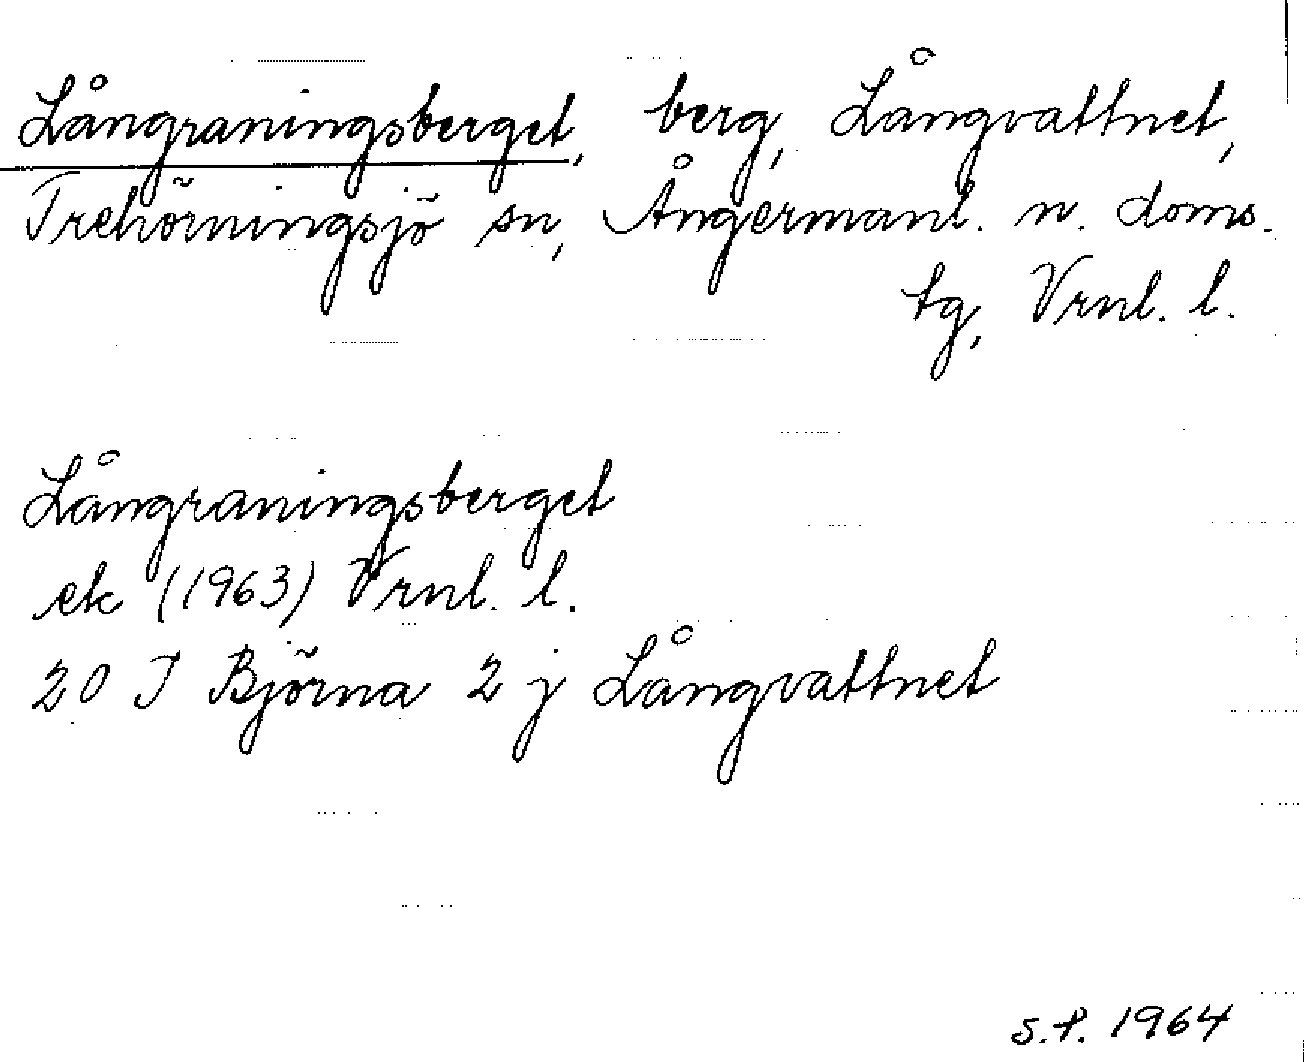 Långraningsberget, berg, Långvattnet,
Trehörningsjö sn, Ångermanl. n. doms.
tg, Vrnl. l.
Långraningsberget
ek (1963) Vrnl. l.
20 J Björna 2 j Långvattnet
S.P. 1964